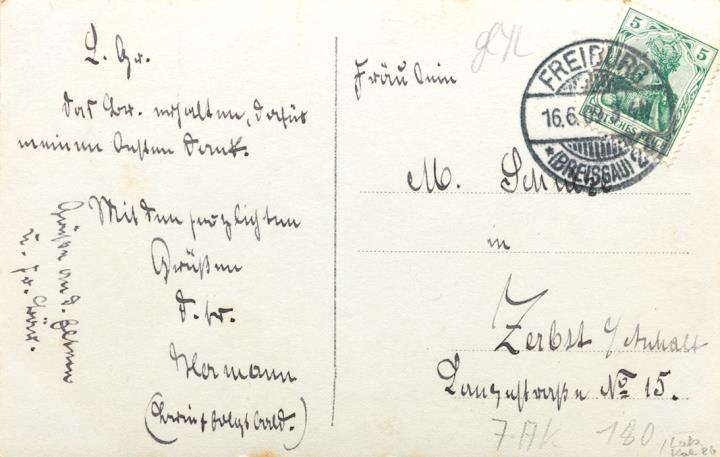 L. Gr.
Das Gr. erhalten, dafür
meinen besten Dank.
Mit den herzlichsten
Grüßen
d. Fr.
Hermann
(Brief folgt bald.)
Grüße an d. Eltern
u. Fr.
Fräulein
M. Schulze
in
Zerbst i/Anhalt
Langestraße No 15.
FREIBURG
16.6.
*(BREISGAU) 2*
5 5
DEUTSCHES REICH
7.AK 180